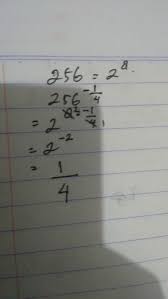 256 = 2⁸.
256^(-1/4)
= 2^(8² × -1/4₁)
= 2⁻²
= 1/4